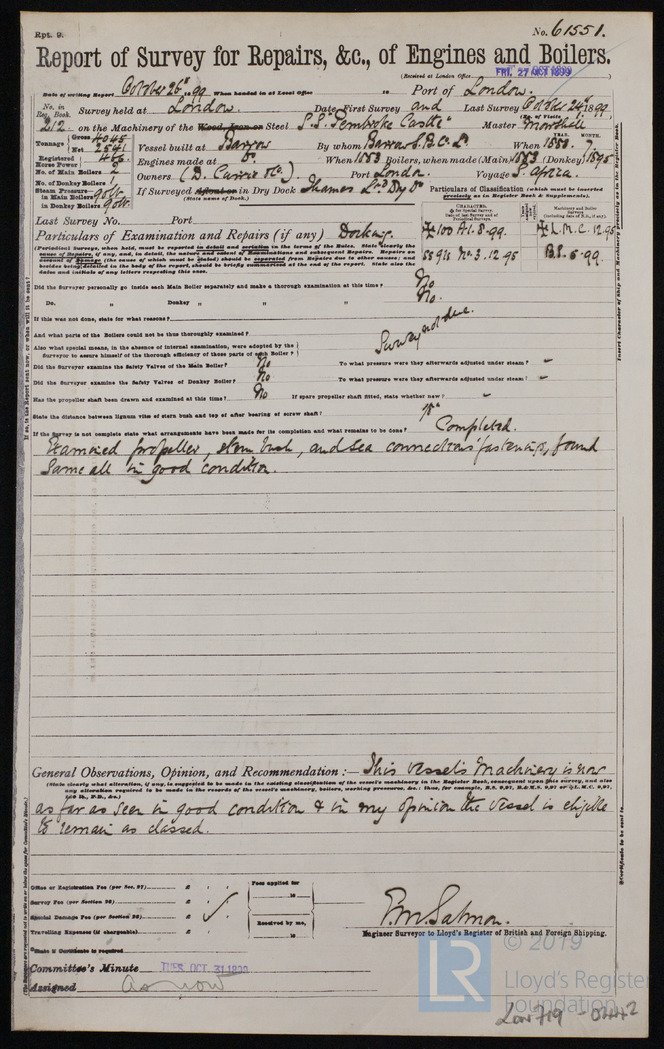 Rpt. 9.
No. 61551.
Report of Survey for Repairs, &c., of Engines and Boilers.
(Received at London Office
FRI. 27 OCT 1899
Date of writing Report October 26th 1899 When handed in at Local Office 18 Port of London.
No. in Reg. Book. Survey held at London. Date, First Survey and Last Survey October 24th 1899
(No. of Visits
212 on the Machinery of the Wood, Iron or Steel S.S. "Pembroke Castle" Master Marshall
Tonnage Gross 4045 Net 2541
YEAR. MONTH.
Vessel built at Barrow By whom Barrow S.B. Co. Ld. When 1883. 7
Registered Horse Power 466
Engines made at Do. When 1883 Boilers, when made (Main) 1883 (Donkey) 1895
No. of Main Boilers 2
Owners (D. Currie & Co.) Port London Voyage S. Africa.
No. of Donkey Boilers 1
Steam Pressure in Main Boilers 90lb.
in Donkey Boilers
If Surveyed Afloat or in Dry Dock Thames Ld Dry Dk
(State name of Dock.)
Particulars of Classification (which must be inserted precisely as in Register Book & Supplements).
CHARACTER.
Last Survey No. Port
Particulars of Examination and Repairs (if any) Docking.
100 A1. 8.99. L.M.C. 12.95
SS Glw No. 3. 12.95 B.S. 6.99.
(Periodical Surveys, when held, must be reported in detail and seriatim in the terms of the Rules. State clearly the
cause of Repairs, if any, and, in detail, the nature and extent of Examinations and subsequent Repairs. Repairs on
account of Damage (the cause of which must be stated) should be separated from Repairs due to other causes; and
besides being detailed in the body of the report, should be briefly summarised at the end of the report. State also the
dates and initials of any letters respecting this case.
Did the Surveyor personally go inside each Main Boiler separately and make a thorough examination at this time? No
Do. „ Donkey „ „ „ No.
If this was not done, state for what reasons?
And what parts of the Boilers could not be thus thoroughly examined? Survey not due.
Also what special means, in the absence of internal examination, were adopted by the
Surveyor to assure himself of the thorough efficiency of those parts of each Boiler?
Did the Surveyor examine the Safety Valves of the Main Boiler? No To what pressure were they afterwards adjusted under steam? –
Did the Surveyor examine the Safety Valves of Donkey Boiler? No To what pressure were they afterwards adjusted under steam? –
Has the propeller shaft been drawn and examined at this time? No If spare propeller shaft fitted, state whether new? –
State the distance between lignum vitæ of stern bush and top of after bearing of screw shaft?
If the Survey is not complete state what arrangements have been made for its completion and what remains to be done? Completed.
Examined propeller, stern bush, and sea connections fastenings, found
same all in good condition.
General Observations, Opinion, and Recommendation:— This vessel's Machinery is now
(State clearly what alteration, if any, is suggested to be made in the existing classification of the vessel's machinery in the Register Book, consequent upon this survey, and also
any alteration required to be made in the records of the vessel's machinery, boilers, working pressures, &c.: thus, for example, B.S. 9,97, B.&M.S. 9,97 or L.M.C. 9,97,
140 lb., F.D., &c.)
as far as seen in good condition & in my opinion the vessel is eligible
to remain as classed.
Office or Registration Fee (per Sec. 27) £ : :
Survey Fee (per Section 28) £ : :
Special Damage Fee (per Section 28) £ : :
Travelling Expenses (if chargeable) £ : :
Fees applied for
18
Received by me,
18
P.M. Salmon.
Engineer Surveyor to Lloyd's Register of British and Foreign Shipping.
State if Certificate is required
Committee's Minute TUES. OCT. 31 1899
Assigned as now
© 2019
LR
Lloyd's Register
Foundation
Lon 719 - 0442